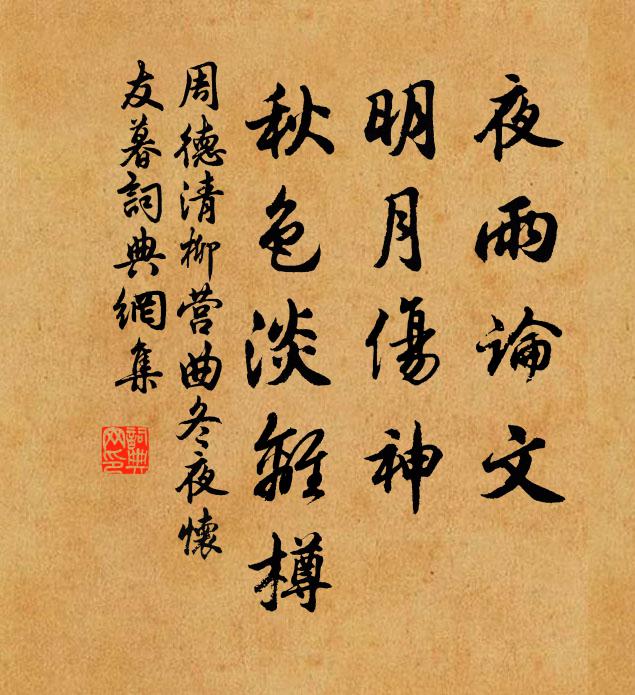 夜雨論文
明月傷神
秋色淡離樽
周德清柳营曲冬夜懷
友暮詞典網集
詞典
网印